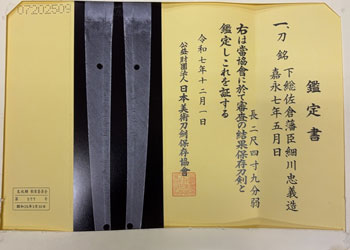 07202509
鑑定書
一、刀 銘 下総佐倉藩臣細川忠義造
嘉永七年五月日
長二尺四寸九分弱
右は當協會に於て審査の結果保存刀剣と
鑑定しこれを証する
令和七年十二月一日
公益財團法人日本美術刀剣保存協會